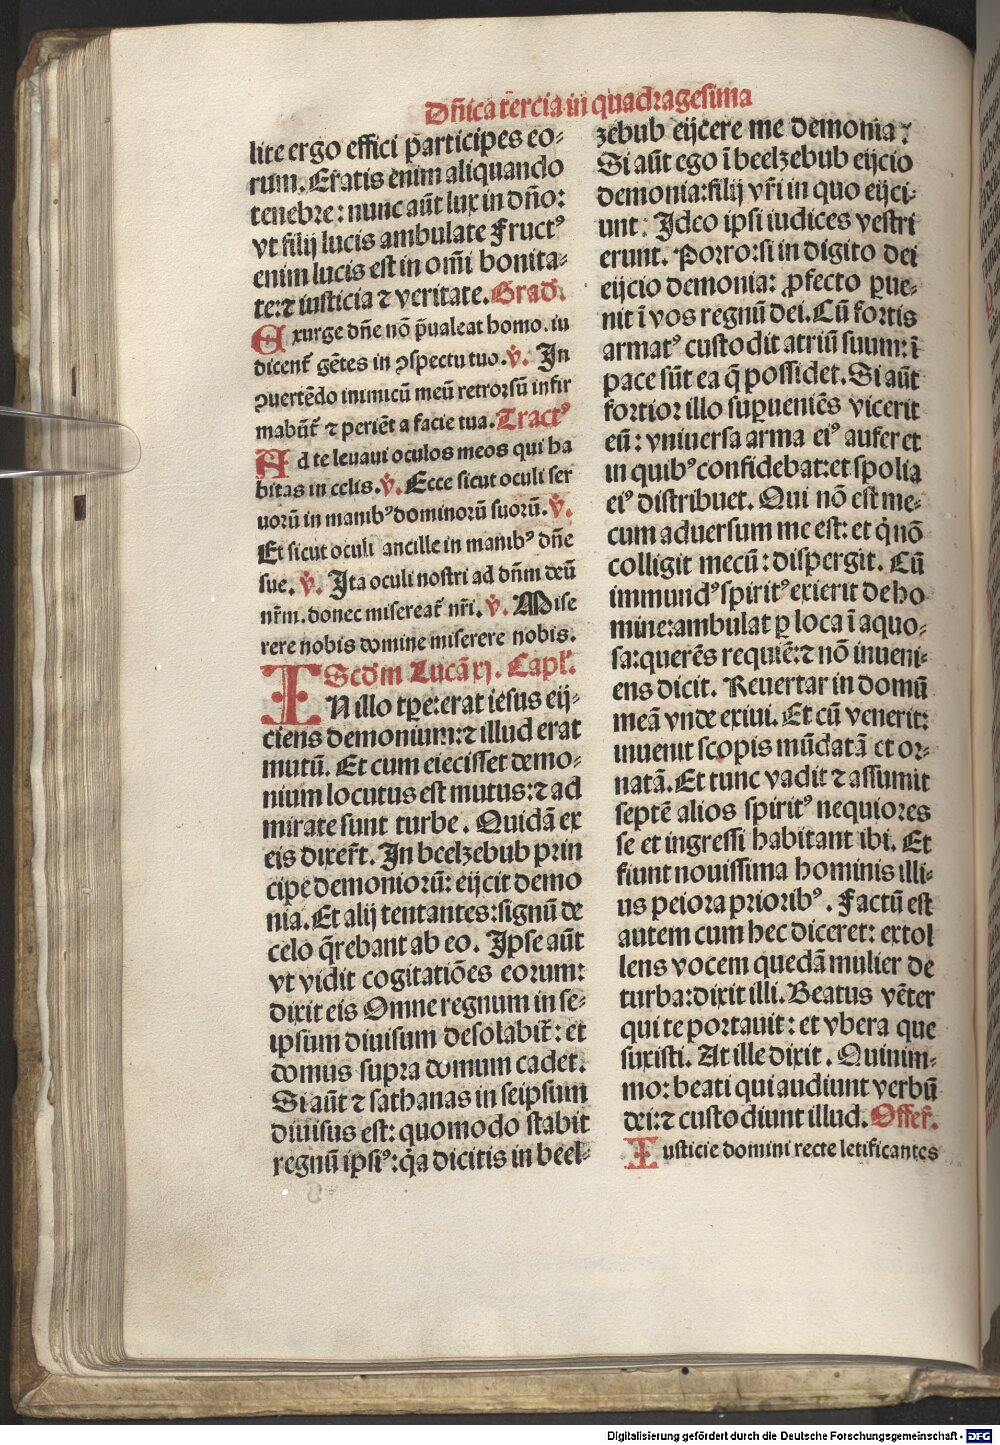 Dñica tercia in quadragesima
lite ergo effici p̱articipes eo⸗
rum. Er̃atis enim aliquando
tenebre: nunc aũt lux in dño:
vt filij lucis ambulate Fructꝰ
enim lucis est in om̃i bonita⸗
te: ⁊ iusticia ⁊ veritate. Grad̃.
Exurge dñe nõ p̃ualeat homo. iu
dicent̃ gẽtes in ꝯspectu tuo. v̾. In
ꝯuertẽdo inimicũ meũ retrorsũ infir
mabũt̃ ⁊ periẽt a facie tua. Tractꝰ
Ad te leuaui oculos meos qui ha
bitas in celis. v̾. Ecce sicut oculi ser
uorũ in manibꝰ dominorũ suorũ. v̾.
Et sicut oculi ancille in manibꝰ dñe
sue. v̾. Ita oculi nostri ad dñm deũ
nr̃m. donec misereat̃ nr̃i. v̾. Mise
rere nobis domine miserere nobis.
Scd̃m Lucã xj. Capl̃.
IN illo tꝑe: erat iesus eij⸗
ciens demonium: ⁊ illud erat
mutũ. Et cum eiecisset demo⸗
nium locutus est mutus: ⁊ ad
mirate sunt turbe. Quidã ex
eis dixer̃t. In beelzebub prin
cipe demoniorũ: eijcit demo
nia. Et alij tentantes: signũ de
celo q̃rebant ab eo. Ipse aũt
vt vidit cogitatiões eorum:
dixit eis Omne regnum in se⸗
ipsum diuisum desolabit̃: et
domus supra domum cadet.
Si aũt ⁊ sathanas in seipsum
diuisus est: quomodo stabit
regnũ ipsiꝰ: q̃a dicitis in beel⸗
zebub eijcere me demonia?
Si aũt ego ĩ beelzebub eijcio
demonia: filij vr̃i in quo eijci⸗
unt. Ideo ipsi iudices vestri
erunt. Porro: si in digito dei
eijcio demonia: ꝓfecto ꝑue⸗
nit ĩ vos regnũ dei. Cũ fortis
armatꝰ custodit atriũ suum: ĩ
pace sũt ea q̃ possidet. Si aũt
fortior illo suꝑueniẽs vicerit
eũ: vniuersa arma eiꝰ auferet
in quibꝰ confidebat: et spolia
eiꝰ distribuet. Qui nõ est me⸗
cum aduersum me est: et q̇ nõ
colligit mecũ: dispergit. Cũ
immundꝰ spiritꝰ exierit de ho
mine: ambulat ꝑ loca ĩ aquo⸗
sa: querẽs requiẽ: ⁊ nõ inueni⸗
ens dicit. Reuertar in domũ
meã vnde exiui. Et cũ venerit:
inuenit scopis mũdatã et or⸗
natã. Et tunc vadit ⁊ assumit
septẽ alios spiritꝰ nequiores
se et ingressi habitant ibi. Et
fiunt nouissima hominis illi⸗
us peiora prioribꝰ. Factũ est
autem cum hec diceret: extol
lens vocem quedã mulier de
turba: dixit illi. Beatus vẽter
qui te portauit: et vbera que
suxisti. At ille dixit. Quinim⸗
mo: beati qui audiunt verbũ
dei: ⁊ custodiunt illud. Offer̃.
Iusticie domini recte letificantes
Digitalisierung gefördert durch die Deutsche Forschungsgemeinschaft - DFG